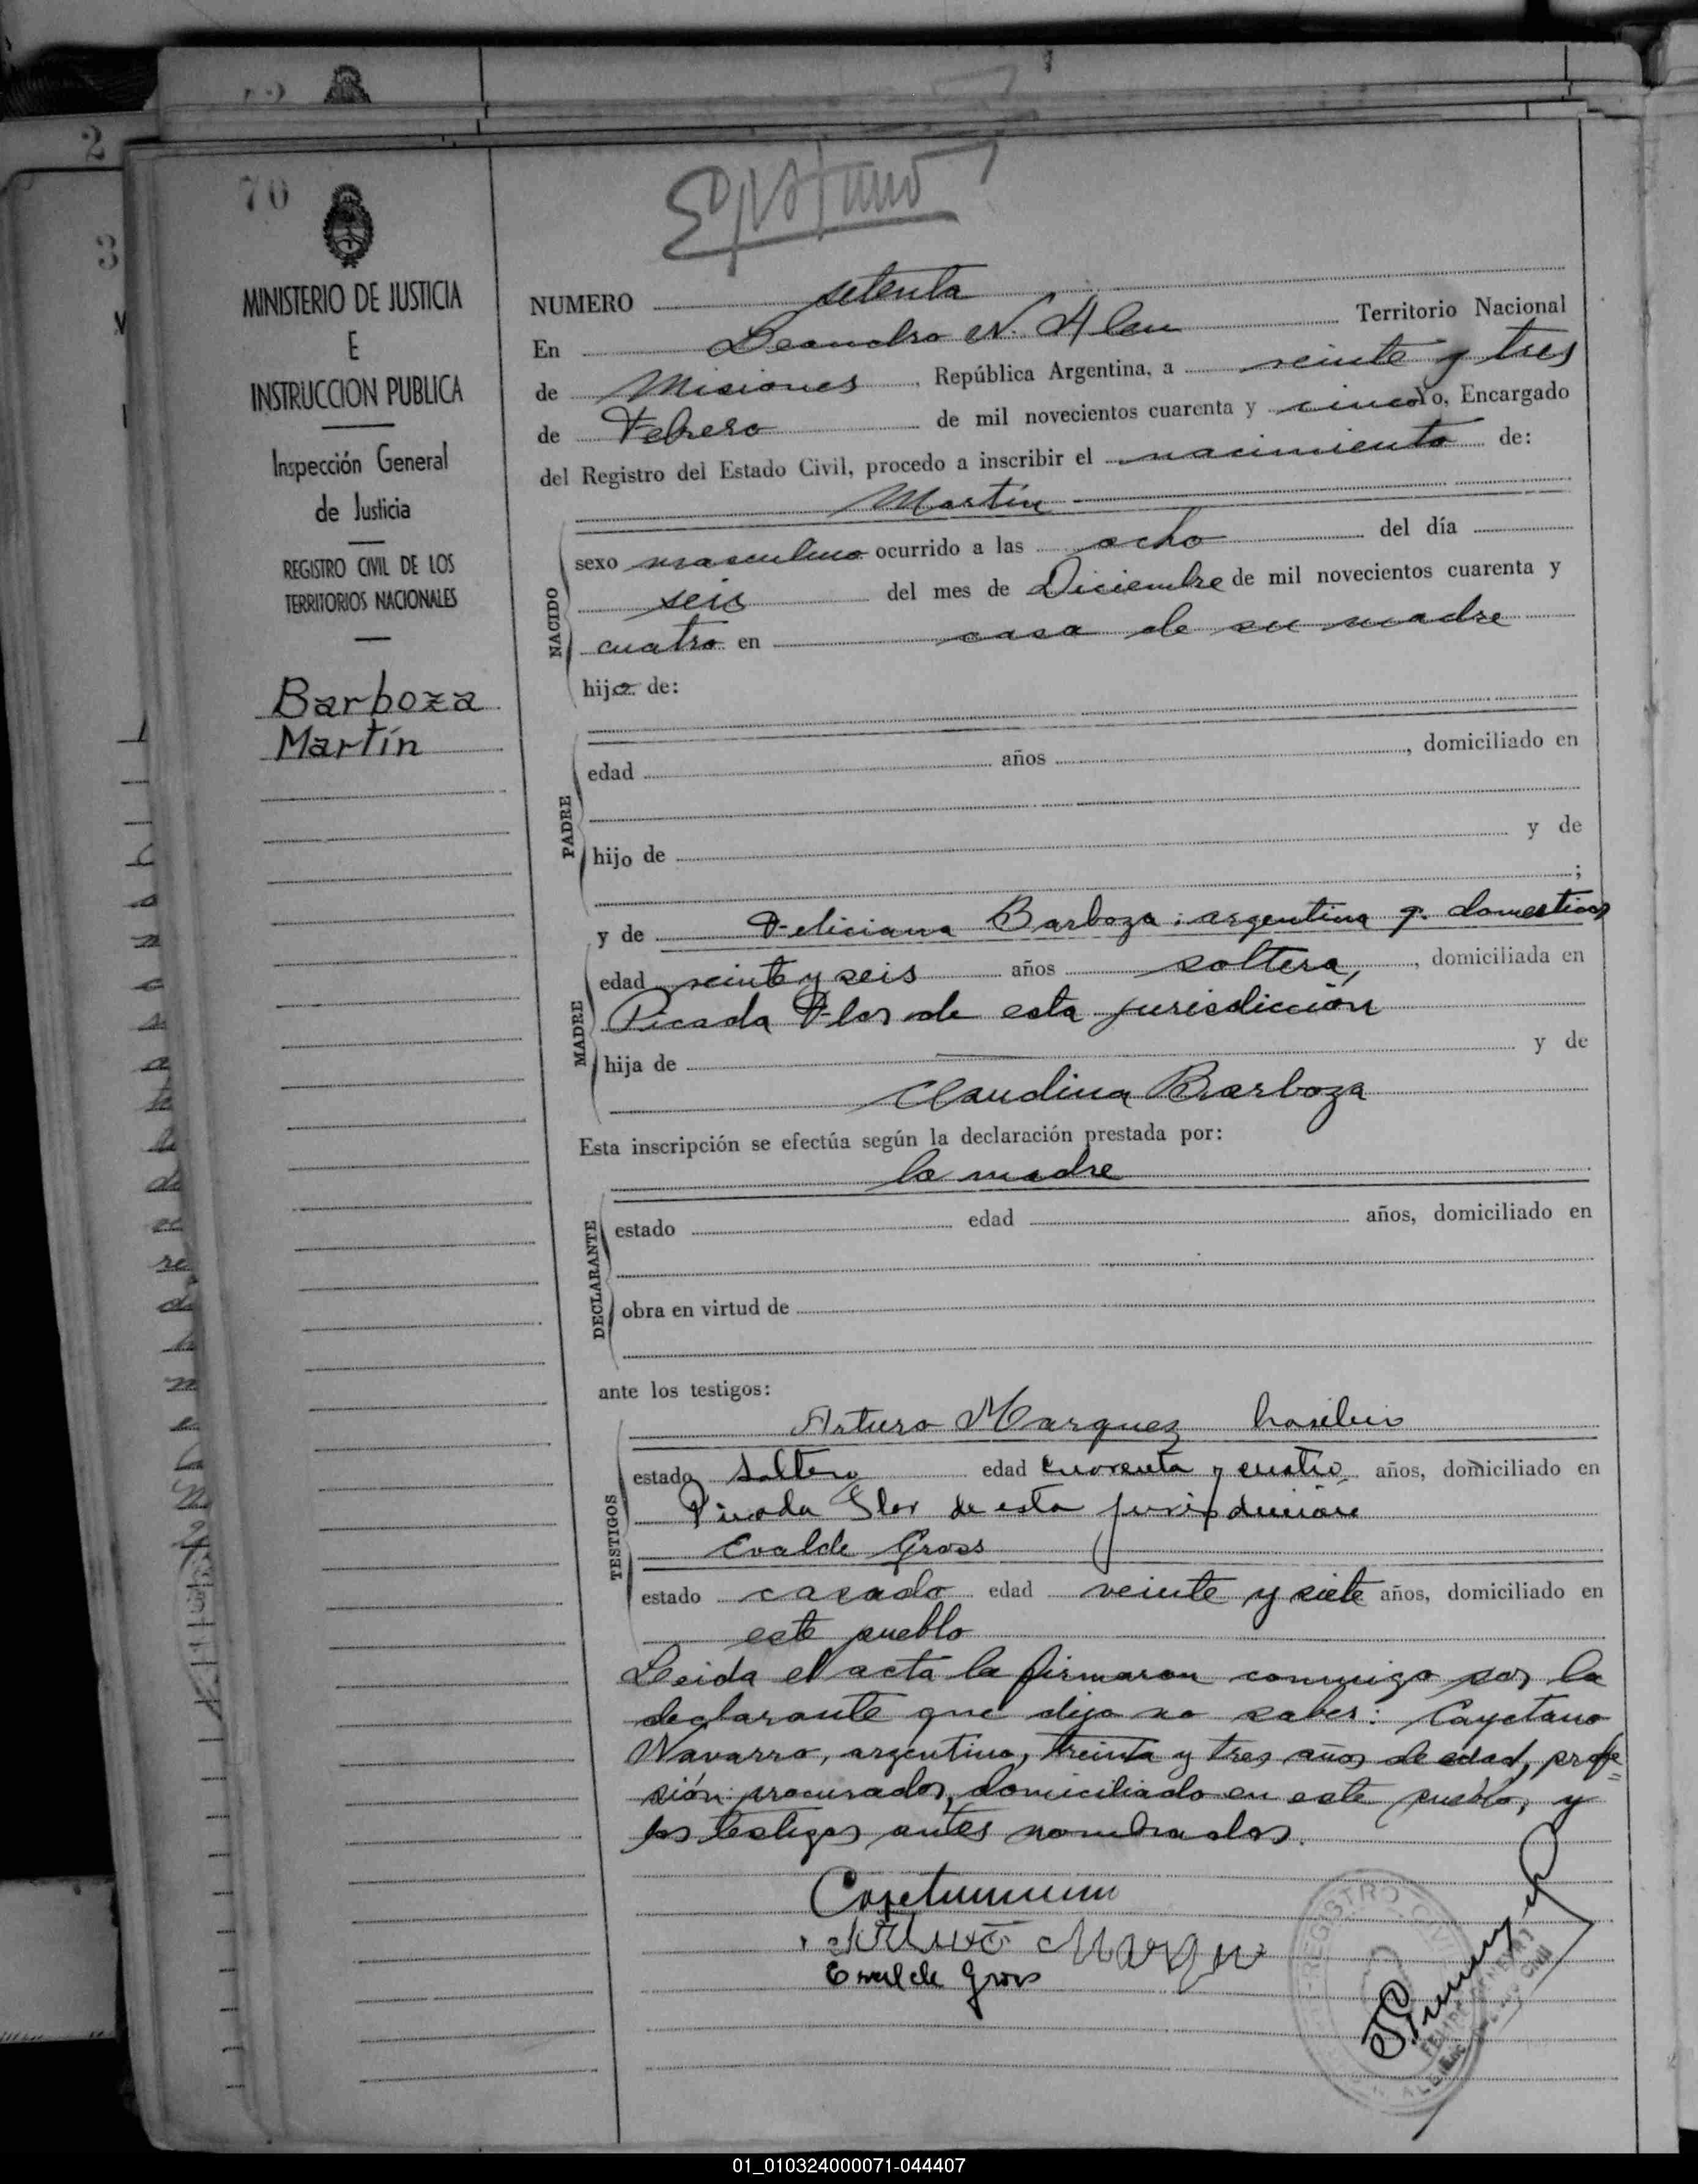 70
MINISTERIO DE JUSTICIA
E
INSTRUCCION PUBLICA
Inspección General
de Justicia
REGISTRO CIVIL DE LOS
TERRITORIOS NACIONALES
Barboza
Martín
NUMERO setenta
En Leandro N. Alem Territorio Nacional
de Misiones, República Argentina, a veinte y tres
de Febrero de mil novecientos cuarenta y cinco Yo, Encargado
del Registro del Estado Civil, procedo a inscribir el nacimiento de:
Martín
NACIDO
sexo masculino ocurrido a las ocho del día
seis del mes de Diciembre de mil novecientos cuarenta y
cuatro en casa de su madre
hijo de:
PADRE
edad años, domiciliado en
hijo de y de
;
MADRE
y de Feliciana Barboza: argentina q. domesticos
edad veinte y seis años soltera, , domiciliada en
Picada Flor de esta jurisdicción
hija de y de
Claudina Barboza
Esta inscripción se efectúa según la declaración prestada por:
la madre
DECLARANTE
estado edad años, domiciliado en
obra en virtud de
ante los testigos:
TESTIGOS
Arturo Marquez
estado soltero edad cuarenta y cuatro años, domiciliado en
Picada Flor de esta jurisdiccion
Evalde Gross
estado casado edad veinte y siete años, domiciliado en
este pueblo
Leida el acta la firmaron conmigo por la
declarante que dijo no saber: Cayetano
Navarro, argentino, treinta y tres años de edad, profe=
sión: procurador, domiciliado en este pueblo, y
los testigos antes nombrados.
Evalde Gross
REGISTRO CIVIL
01_010324000071-044407